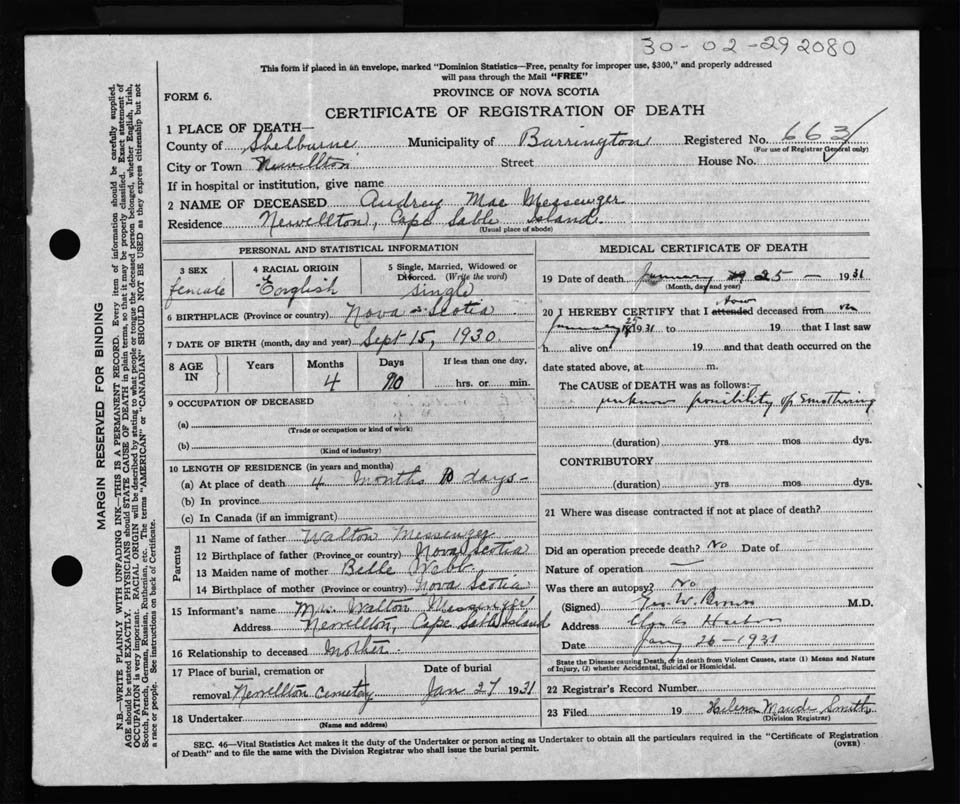 30-02-292080
This form if placed in an envelope, marked "Dominion Statistics—Free, penalty for improper use, $300," and properly addressed
will pass through the Mail "FREE"
FORM 6.
PROVINCE OF NOVA SCOTIA
CERTIFICATE OF REGISTRATION OF DEATH
1 PLACE OF DEATH—
County of Shelburne Municipality of Barrington Registered No. 663
(For use of Registrar General only)
City or Town Newellton Street House No.
If in hospital or institution, give name
2 NAME OF DECEASED Audrey Mae Messenger
Residence Newellton, Cape Sable Island
(Usual place of abode)
MARGIN RESERVED FOR BINDING
N.B.—WRITE PLAINLY WITH UNFADING INK—THIS IS A PERMANENT RECORD. Every item of information should be carefully supplied.
AGE should be stated EXACTLY. PHYSICIANS should STATE CAUSE OF DEATH in plain terms, so that it may be properly classified. Exact statement of
OCCUPATION is very important. RACIAL ORIGIN will be described by stating to what people or tongue the deceased person belonged, whether English, Irish,
Scotch, French, German, Russian, Ruthenian, etc. The terms "AMERICAN" or "CANADIAN" SHOULD NOT BE USED as they express citizenship but not
a race or people. See instructions on back of Certificate.
PERSONAL AND STATISTICAL INFORMATION
3 SEX
female
4 RACIAL ORIGIN
English
5 Single, Married, Widowed or
Divorced. (Write the word)
single
6 BIRTHPLACE (Province or country) Nova Scotia
7 DATE OF BIRTH (month, day and year) Sept 15, 1930
8 AGE
IN
Years Months Days If less than one day,
4 10 hrs. or min.
9 OCCUPATION OF DECEASED
(a)
(Trade or occupation or kind of work)
(b)
(Kind of industry)
10 LENGTH OF RESIDENCE (in years and months)
(a) At place of death 4 months 10 days
(b) In province
(c) In Canada (if an immigrant)
Parents
11 Name of father Walton Messenger
12 Birthplace of father (Province or country) Nova Scotia
13 Maiden name of mother Belle Webb
14 Birthplace of mother (Province or country) Nova Scotia
15 Informant's name Mrs Walton Messenger
Address Newellton, Cape Sable Island
16 Relationship to deceased Mother
17 Place of burial, cremation or Date of burial
removal Newellton Cemetery Jan 27 1931
18 Undertaker
(Name and address)
MEDICAL CERTIFICATE OF DEATH
19 Date of death January 25 – 1931
(Month, day and year)
20 I HEREBY CERTIFY that I attended saw deceased from on
January 25 1931 to 19 that I last saw
h alive on 19 and that death occurred on the
date stated above, at m.
The CAUSE of DEATH was as follows:—
unknow possibility of smothering
(duration) yrs. mos. dys.
CONTRIBUTORY
(duration) yrs. mos. dys.
21 Where was disease contracted if not at place of death?
Did an operation precede death? No Date of
Nature of operation —
Was there an autopsy? No
(Signed) Geo. W. Brown M.D.
Address Clarks Harbor
Date Jany 26 – 1931
State the Disease causing Death, or in death from Violent Causes, state (1) Means and Nature
of Injury, (2) whether Accidental, Suicidal or Homicidal.
22 Registrar's Record Number
23 Filed 19 Helena Maude Smith
(Division Registrar)
SEC. 46—Vital Statistics Act makes it the duty of the Undertaker or person acting as Undertaker to obtain all the particulars required in the "Certificate of Registration
of Death" and to file the same with the Division Registrar who shall issue the burial permit.
(OVER)